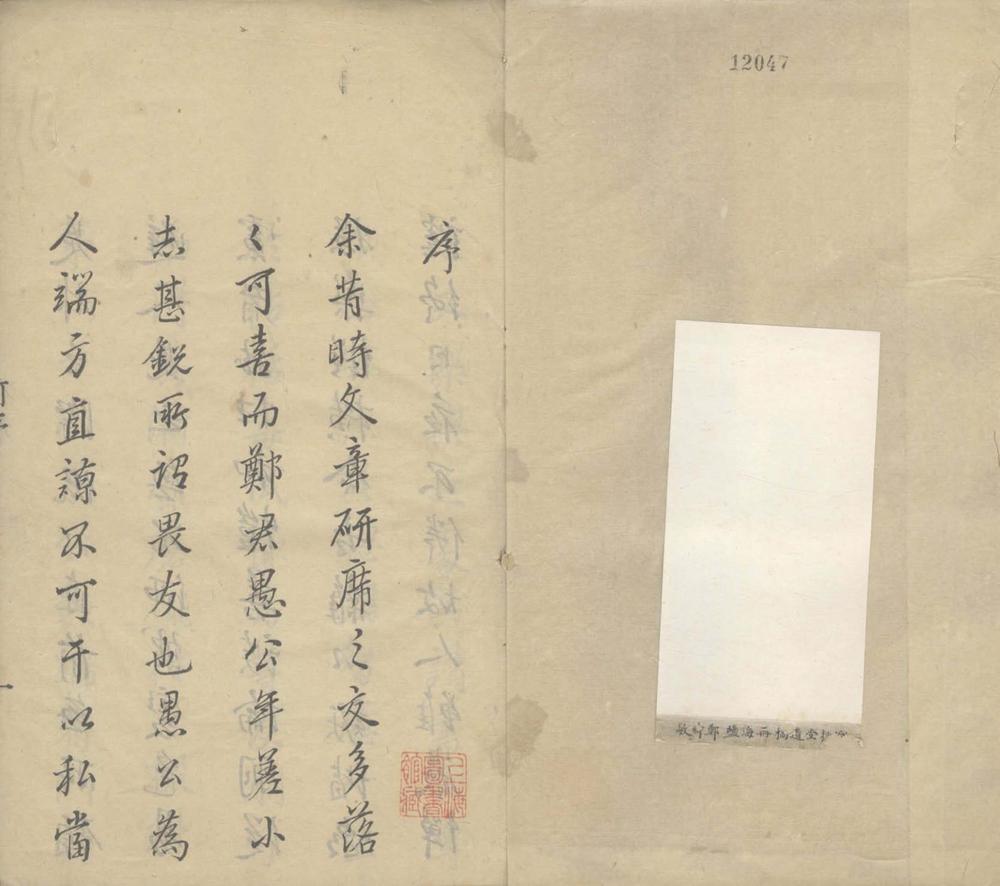 12047
序
余昔時文章研席之交多落
〻可喜而鄭君愚公年差小
志甚銳所謂畏友也愚公為
人端方直諒不可干以私當
上海圖書館藏
一